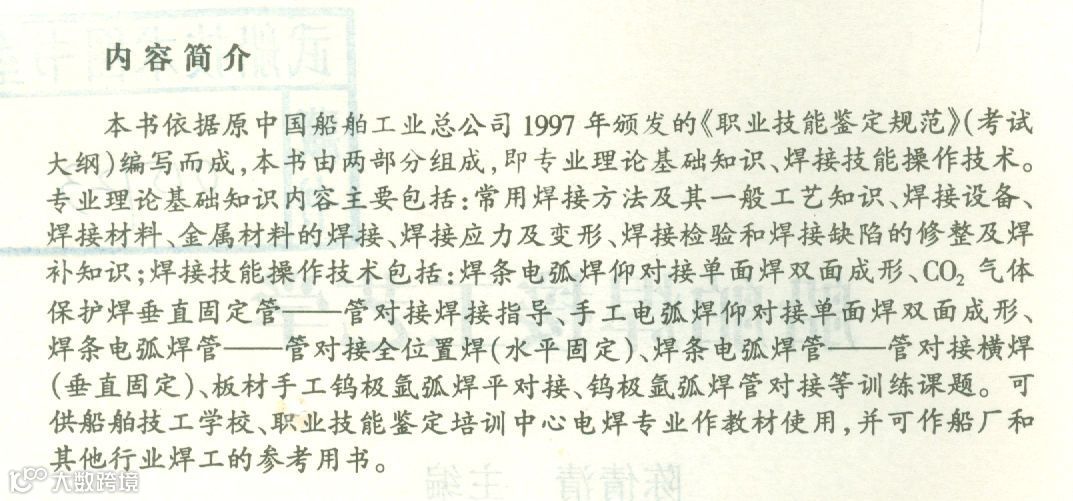 内容简介
本书依据原中国船舶工业总公司1997年颁发的《职业技能鉴定规范》(考试
大纲)编写而成,本书由两部分组成,即专业理论基础知识、焊接技能操作技术。
专业理论基础知识内容主要包括:常用焊接方法及其一般工艺知识、焊接设备、
焊接材料、金属材料的焊接、焊接应力及变形、焊接检验和焊接缺陷的修整及焊
补知识;焊接技能操作技术包括:焊条电弧焊仰对接单面焊双面成形、CO₂气体
保护焊垂直固定管——管对接焊接指导、手工电弧焊仰对接单面焊双面成形、
焊条电弧焊管——管对接全位置焊(水平固定)、焊条电弧焊管——管对接横焊
(垂直固定)、板材手工钨极氩弧焊平对接、钨极氩弧焊管对接等训练课题。可
供船舶技工学校、职业技能鉴定培训中心电焊专业作教材使用,并可作船厂和
其他行业焊工的参考用书。
大数跨境
陈倩清 主编